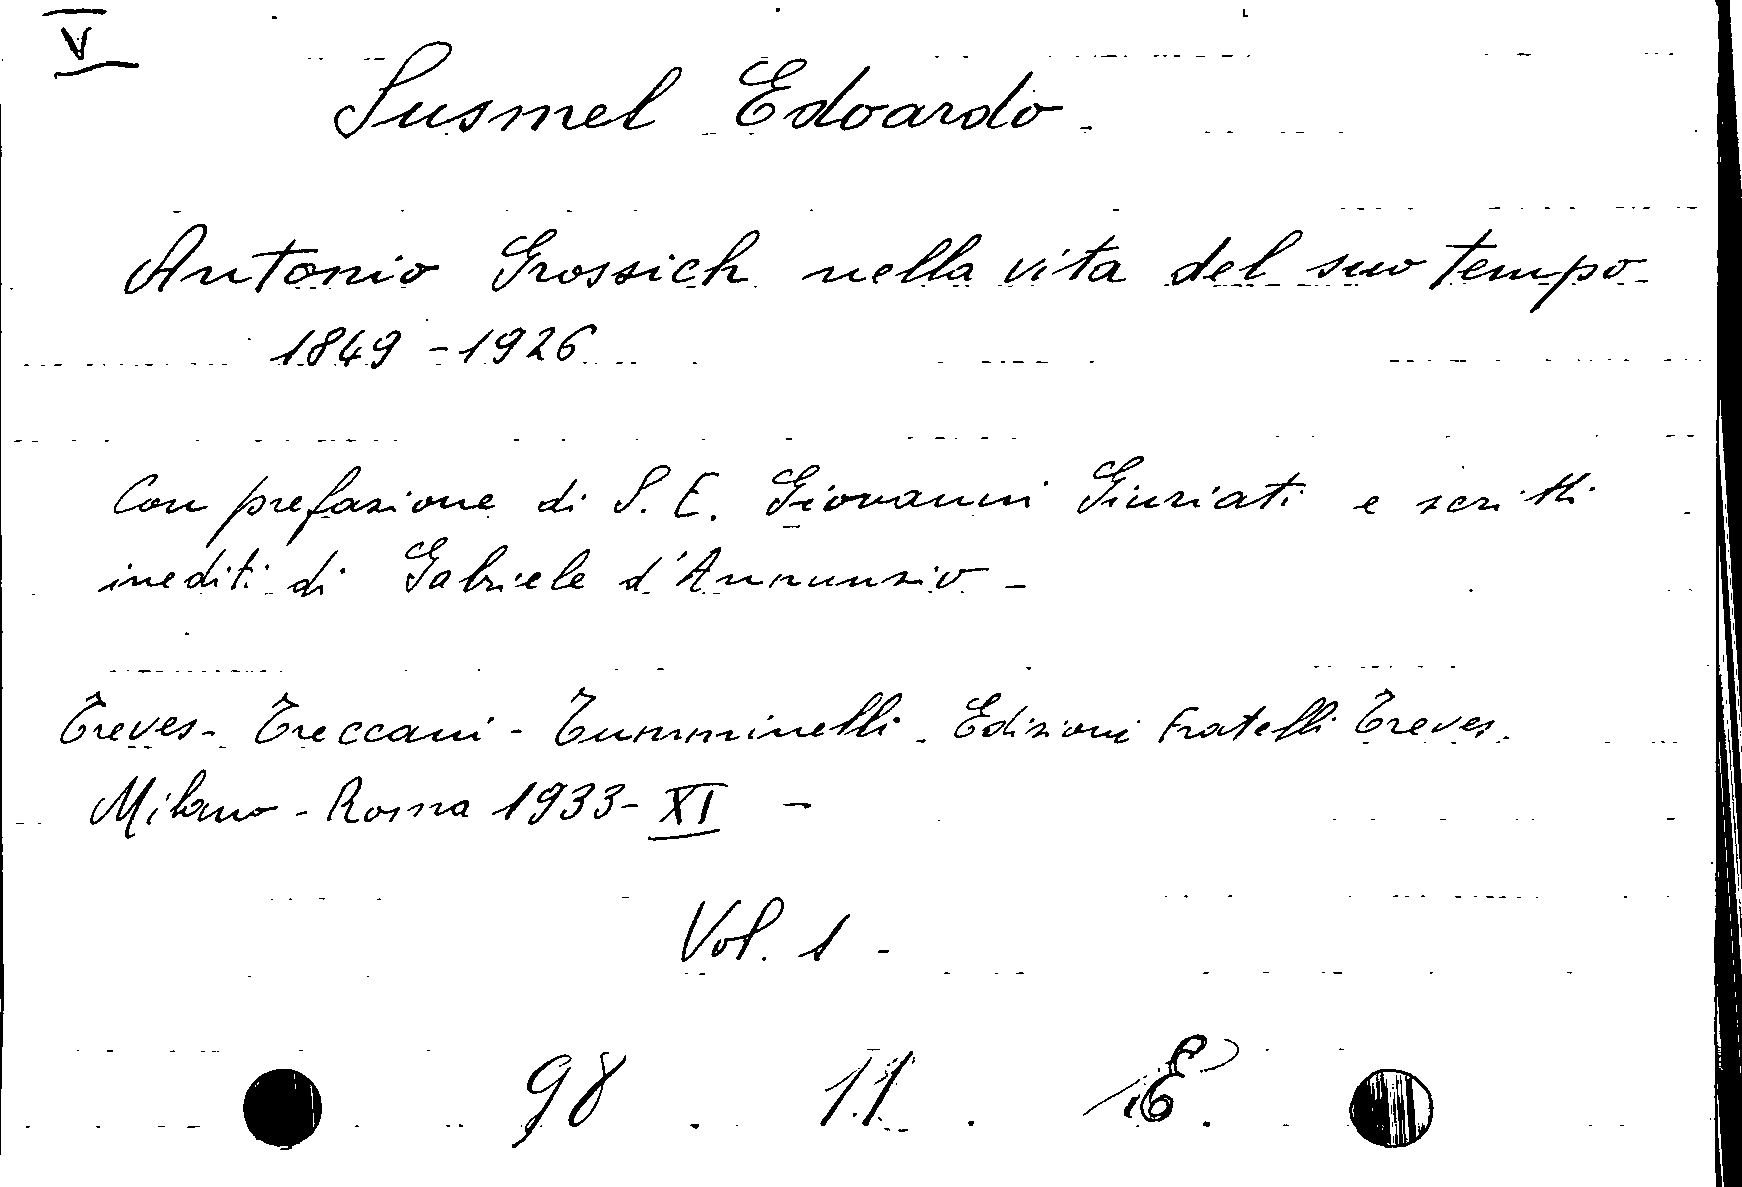 V
Susmel Edoardo -
Antonio Grossich nella vita del suo tempo
1849 - 1926
Con prefazione di S. E. Giovanni Giuriati e scritti
inediti di Gabriele d'Annunzio -
Treves - Treccani - Tumminelli - Edizioni Fratelli Treves.
Milano - Roma 1933 - XI -
Vol. 1 -
98 11 E